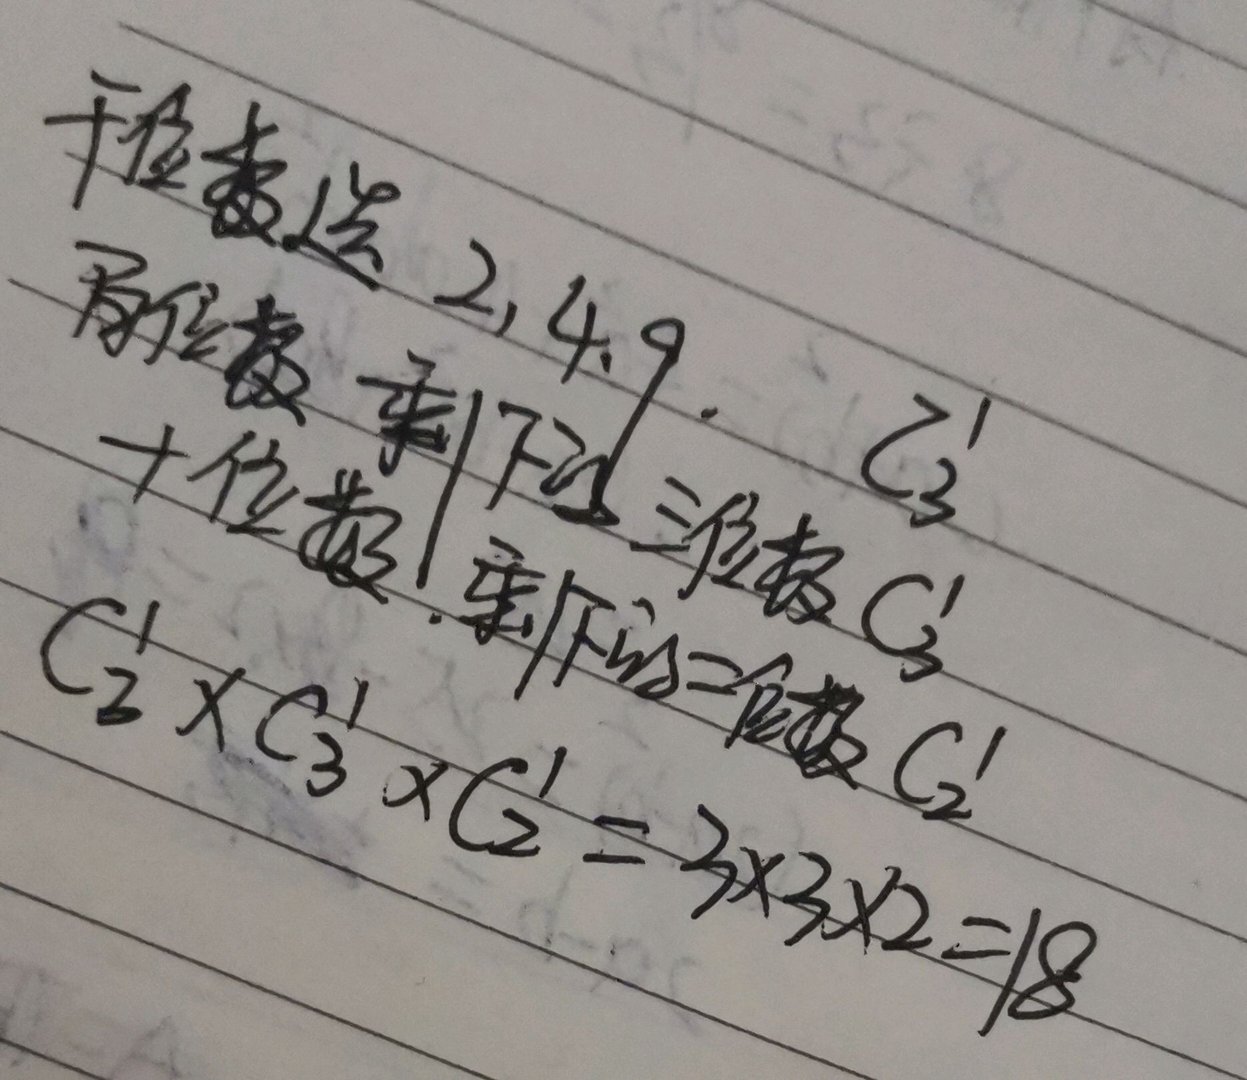 千位数选 2,4.9. C₃¹
百位数 剩下的三位数 C₃¹
十位数. 剩下的二位数 C₂¹
C₂¹ × C₃¹ × C₂¹ = 3×3×2=18